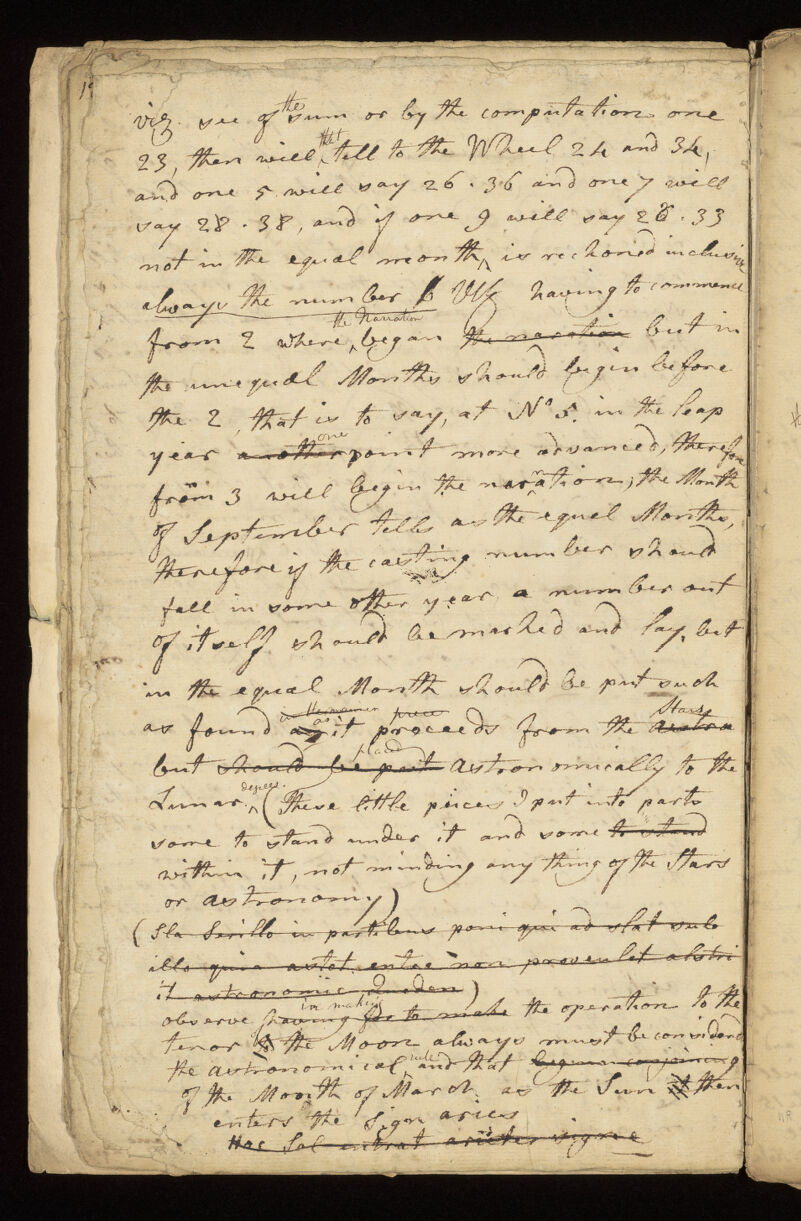 19
viz. see of the sum or by the computation one
23, then will that tell to the Wheel 24 and 34,
and one 5 will say 26 . 36 and one 7 will
say 28 . 38, and if one 9 will say 28 . 33
not in the equal month, is reckoned inclusive
always the number having to commence
from 2 where the Narration began the naration but in
the unequal Months should begin before
the 2, that is to say, at No 5. in the leap
year another one point more advanced, therefore
from 3 will begin the narration, the Month
of September tells as the equal Months,
therefore if the casting number should
fall in some other year a number out
of itself should be marked and lay, but
in the equal Month should be put such
as found as it proceeds from the Stars astra
but should be put placed astronomically to the
Lunar degree. (These little pieces I put into parts
some to stand under it and some to stand
within it, not minding any thing of the Stars
or astronomy)
(Sla Serillo in partibus poni qui ad slat sub
illo quia astat entee non provenlet abstri
it astronomic Quoden)
observe in making having for to make the operation to the
tenor the Moon always must be considered
the astronomical, rule and that conjoining
of the Month of March as the Sun it then
enters the Sign aries
Hoc Sol intrat arieter signe